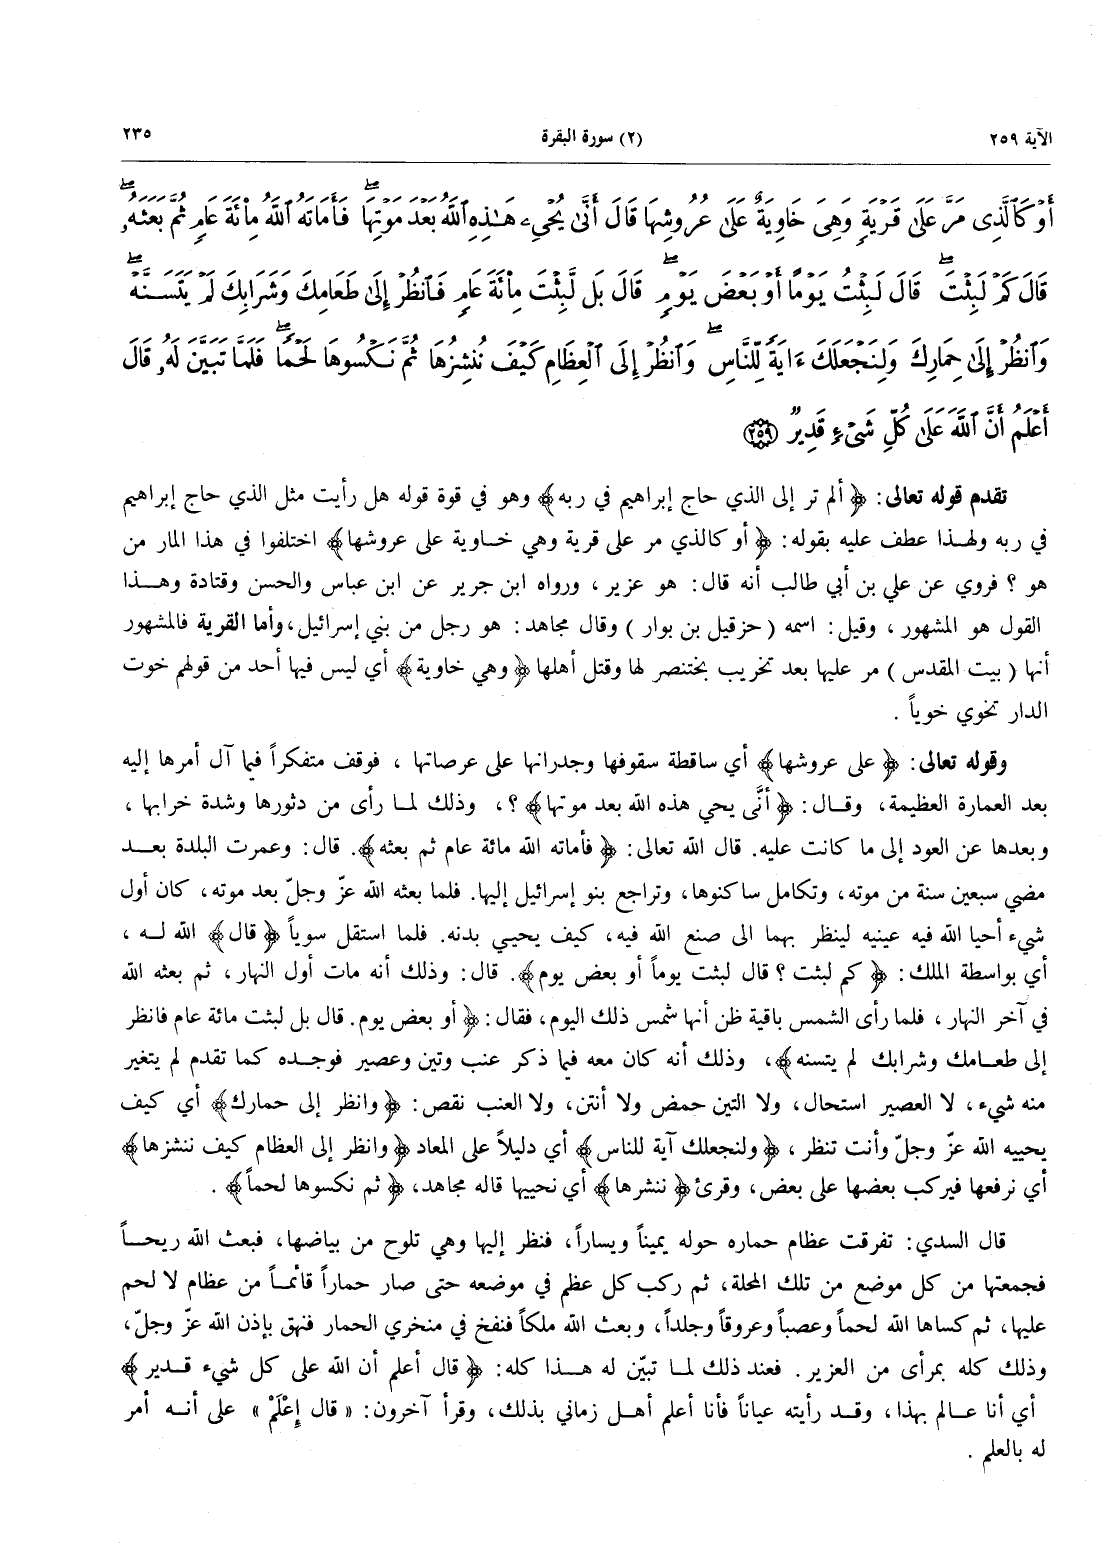 الآية ٢٥٩
(٢) سورة البقرة
٢٣٥
أَوْ كَٱلَّذِى مَرَّ عَلَىٰ قَرْيَةٍ وَهِىَ خَاوِيَةٌ عَلَىٰ عُرُوشِهَا قَالَ أَنَّىٰ يُحْىِۦ هَـٰذِهِ ٱللَّهُ بَعْدَ مَوْتِهَا ۖ فَأَمَاتَهُ ٱللَّهُ مِا۟ئَةَ عَامٍ ثُمَّ بَعَثَهُۥ ۖ
قَالَ كَمْ لَبِثْتَ ۖ قَالَ لَبِثْتُ يَوْمًا أَوْ بَعْضَ يَوْمٍ ۖ قَالَ بَل لَّبِثْتَ مِا۟ئَةَ عَامٍ فَٱنظُرْ إِلَىٰ طَعَامِكَ وَشَرَابِكَ لَمْ يَتَسَنَّهْ ۖ
وَٱنظُرْ إِلَىٰ حِمَارِكَ وَلِنَجْعَلَكَ ءَايَةً لِّلنَّاسِ ۖ وَٱنظُرْ إِلَى ٱلْعِظَامِ كَيْفَ نُنشِزُهَا ثُمَّ نَكْسُوهَا لَحْمًا ۚ فَلَمَّا تَبَيَّنَ لَهُۥ قَالَ
أَعْلَمُ أَنَّ ٱللَّهَ عَلَىٰ كُلِّ شَىْءٍ قَدِيرٌ ﴿٢٥٩﴾
تقدم قوله تعالى: ﴿ألم تر إلى الذي حاج إبراهيم في ربه﴾ وهو في قوة قوله هل رأيت مثل الذي حاج إبراهيم
في ربه ولهذا عطف عليه بقوله: ﴿أو كالذي مر على قرية وهي خاوية على عروشها﴾ اختلفوا في هذا المار من
هو ؟ فروي عن علي بن أبي طالب أنه قال: هو عزير ، ورواه ابن جرير عن ابن عباس والحسن وقتادة وهذا
القول هو المشهور ، وقيل: اسمه (حزقيل بن بوار) وقال مجاهد: هو رجل من بني إسرائيل، وأما القرية فالمشهور
أنها (بيت المقدس) مر عليها بعد تخريب بختنصر لها وقتل أهلها ﴿وهي خاوية﴾ أي ليس فيها أحد من قولهم خوت
الدار تخوي خوياً .
وقوله تعالى: ﴿على عروشها﴾ أي ساقطة سقوفها وجدرانها على عرصاتها ، فوقف متفكراً فيما آل أمرها إليه
بعد العمارة العظيمة، وقال: ﴿أنَّى يحي هذه الله بعد موتها﴾ ؟، وذلك لما رأى من دثورها وشدة خرابها ،
وبعدها عن العود إلى ما كانت عليه. قال الله تعالى: ﴿فأماته الله مائة عام ثم بعثه﴾. قال: وعمرت البلدة بعد
مضي سبعين سنة من موته، وتكامل ساكنوها، وتراجع بنو إسرائيل إليها. فلما بعثه الله عزّ وجلّ بعد موته، كان أول
شيء أحيا الله فيه عينيه لينظر بهما الى صنع الله فيه، كيف يحيي بدنه. فلما استقل سوياً ﴿قال﴾ الله له ،
أي بواسطة الملك: ﴿كم لبثت ؟ قال لبثت يوماً أو بعض يوم﴾. قال: وذلك أنه مات أول النهار ، ثم بعثه الله
في آخر النهار ، فلما رأى الشمس باقية ظن أنها شمس ذلك اليوم، فقال: ﴿أو بعض يوم. قال بل لبثت مائة عام فانظر
إلى طعامك وشرابك لم يتسنه﴾، وذلك أنه كان معه فيما ذكر عنب وتين وعصير فوجده كما تقدم لم يتغير
منه شيء، لا العصير استحال، ولا التين حمض ولا أنتن، ولا العنب نقص: ﴿وانظر إلى حمارك﴾ أي كيف
يحييه الله عزّ وجلّ وأنت تنظر ، ﴿ولنجعلك آية للناس﴾ أي دليلاً على المعاد ﴿وانظر إلى العظام كيف ننشزها﴾
أي نرفعها فيركب بعضها على بعض، وقرئ ﴿ننشرها﴾ أي نحييها قاله مجاهد، ﴿ثم نكسوها لحماً﴾ .
قال السدي: تفرقت عظام حماره حوله يميناً ويساراً، فنظر إليها وهي تلوح من بياضها، فبعث الله ريحاً
فجمعتها من كل موضع من تلك المحلة، ثم ركب كل عظم في موضعه حتى صار حماراً قائماً من عظام لا لحم
عليها، ثم كساها الله لحماً وعصباً وعروقاً وجلداً، وبعث الله ملكاً فنفخ في منخري الحمار فنهق بإذن الله عزّ وجلّ،
وذلك كله بمرأى من العزير. فعند ذلك لما تبيّن له هذا كله: ﴿قال أعلم أن الله على كل شيء قدير﴾
أي أنا عالم بهذا، وقد رأيته عياناً فأنا أعلم أهل زماني بذلك، وقرأ آخرون: « قال إِعْلَمْ » على أنه أمر
له بالعلم .